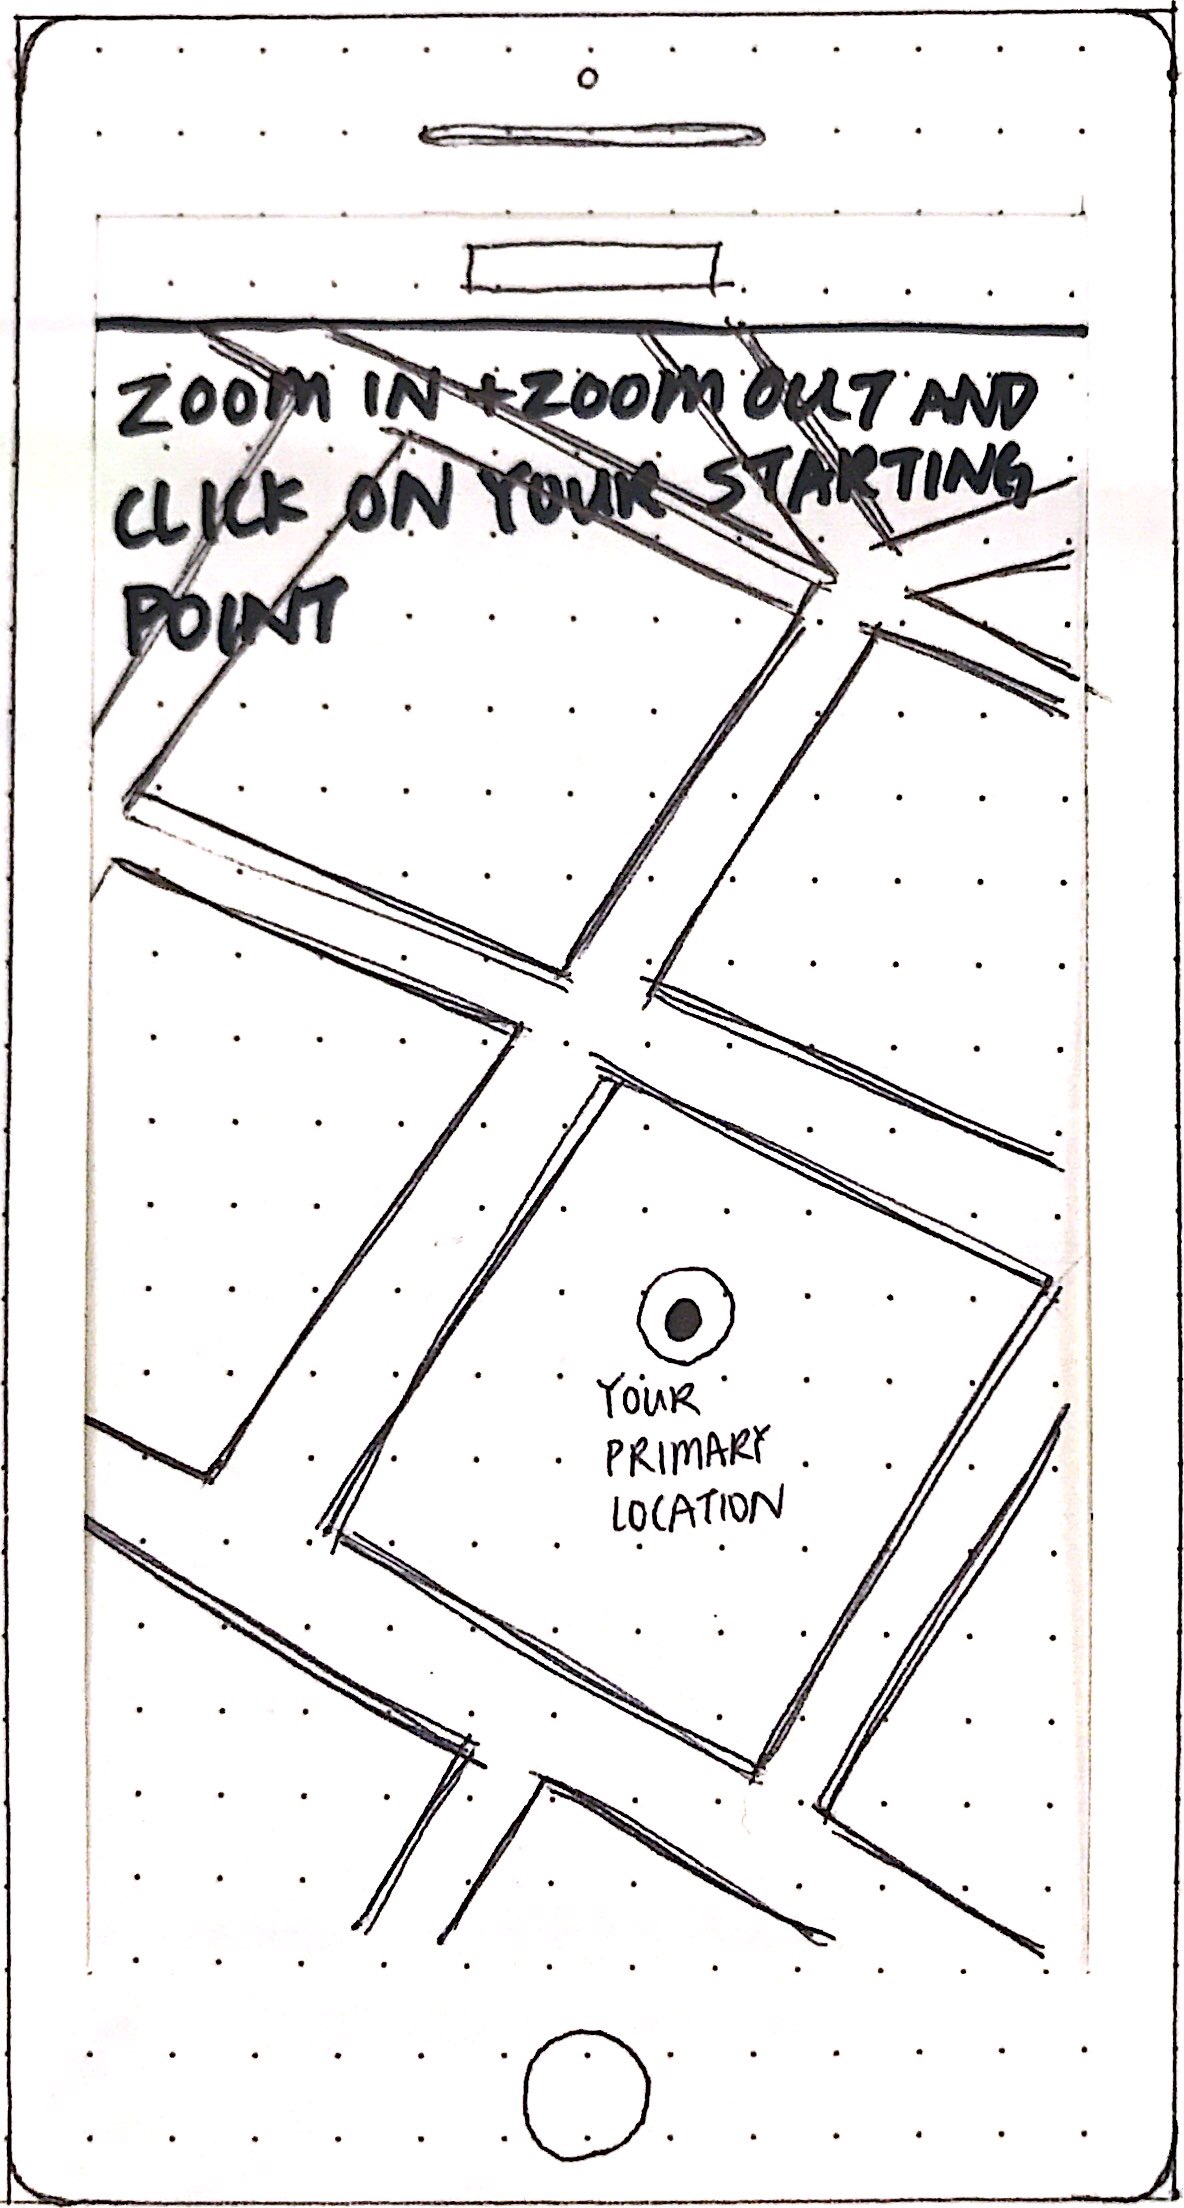 ZOOM IN + ZOOM OUT AND
CLICK ON YOUR STARTING
POINT
YOUR
PRIMARY
LOCATION